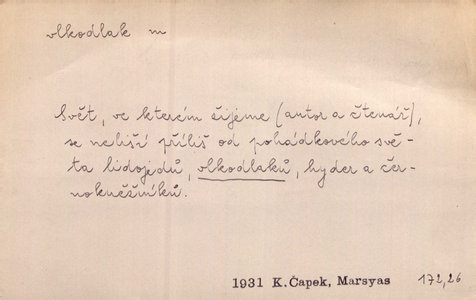 vlkodlak m
Svět, ve kterém žijeme (autor a čtenář),
se neliší příliš od pohádkového svě-
ta lidojedů, vlkodlaků, hyder a čer-
nokněžníků.
1931 K.Čapek, Marsyas 172,26